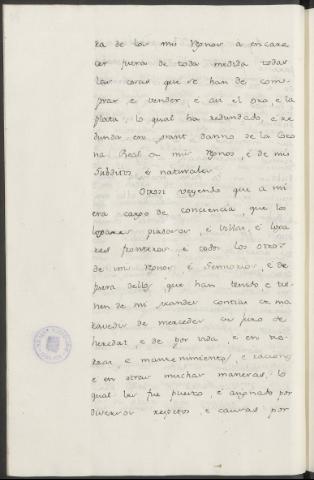 ra de los mis Regnos a encare
cer fuera de toda medida todas
las cosas que se han de com
prar e vender, e asi el oro, e la
plata, lo qual ha redundado, e re
dunda en grant danno de la Coro
na Real e mis Regnos, é de mis
Subditos e naturales.
Otrosi veyendo que a mi
era cargo de conciencia, que los
logares pasados, é Villas, é Luga
res fronteros, e todos los otros
de mis Regnos é Sennorios, e de
fuera dellos que han tenido e tie
nen de mi grandes contias en ma
ravedis de mercedes en juro de
heredat, e de por vida, e en tie
rras, e mantenimientos, e raciones
e en otras muchas maneras, lo
qual les fue puesto, e asignado por
diversos respetos, e causas por